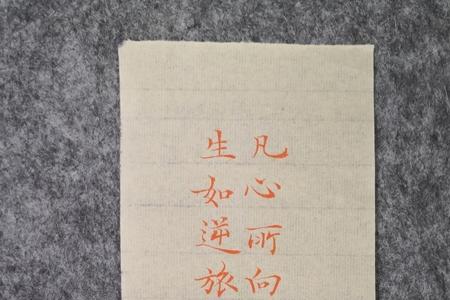 凡心所向
生如逆旅